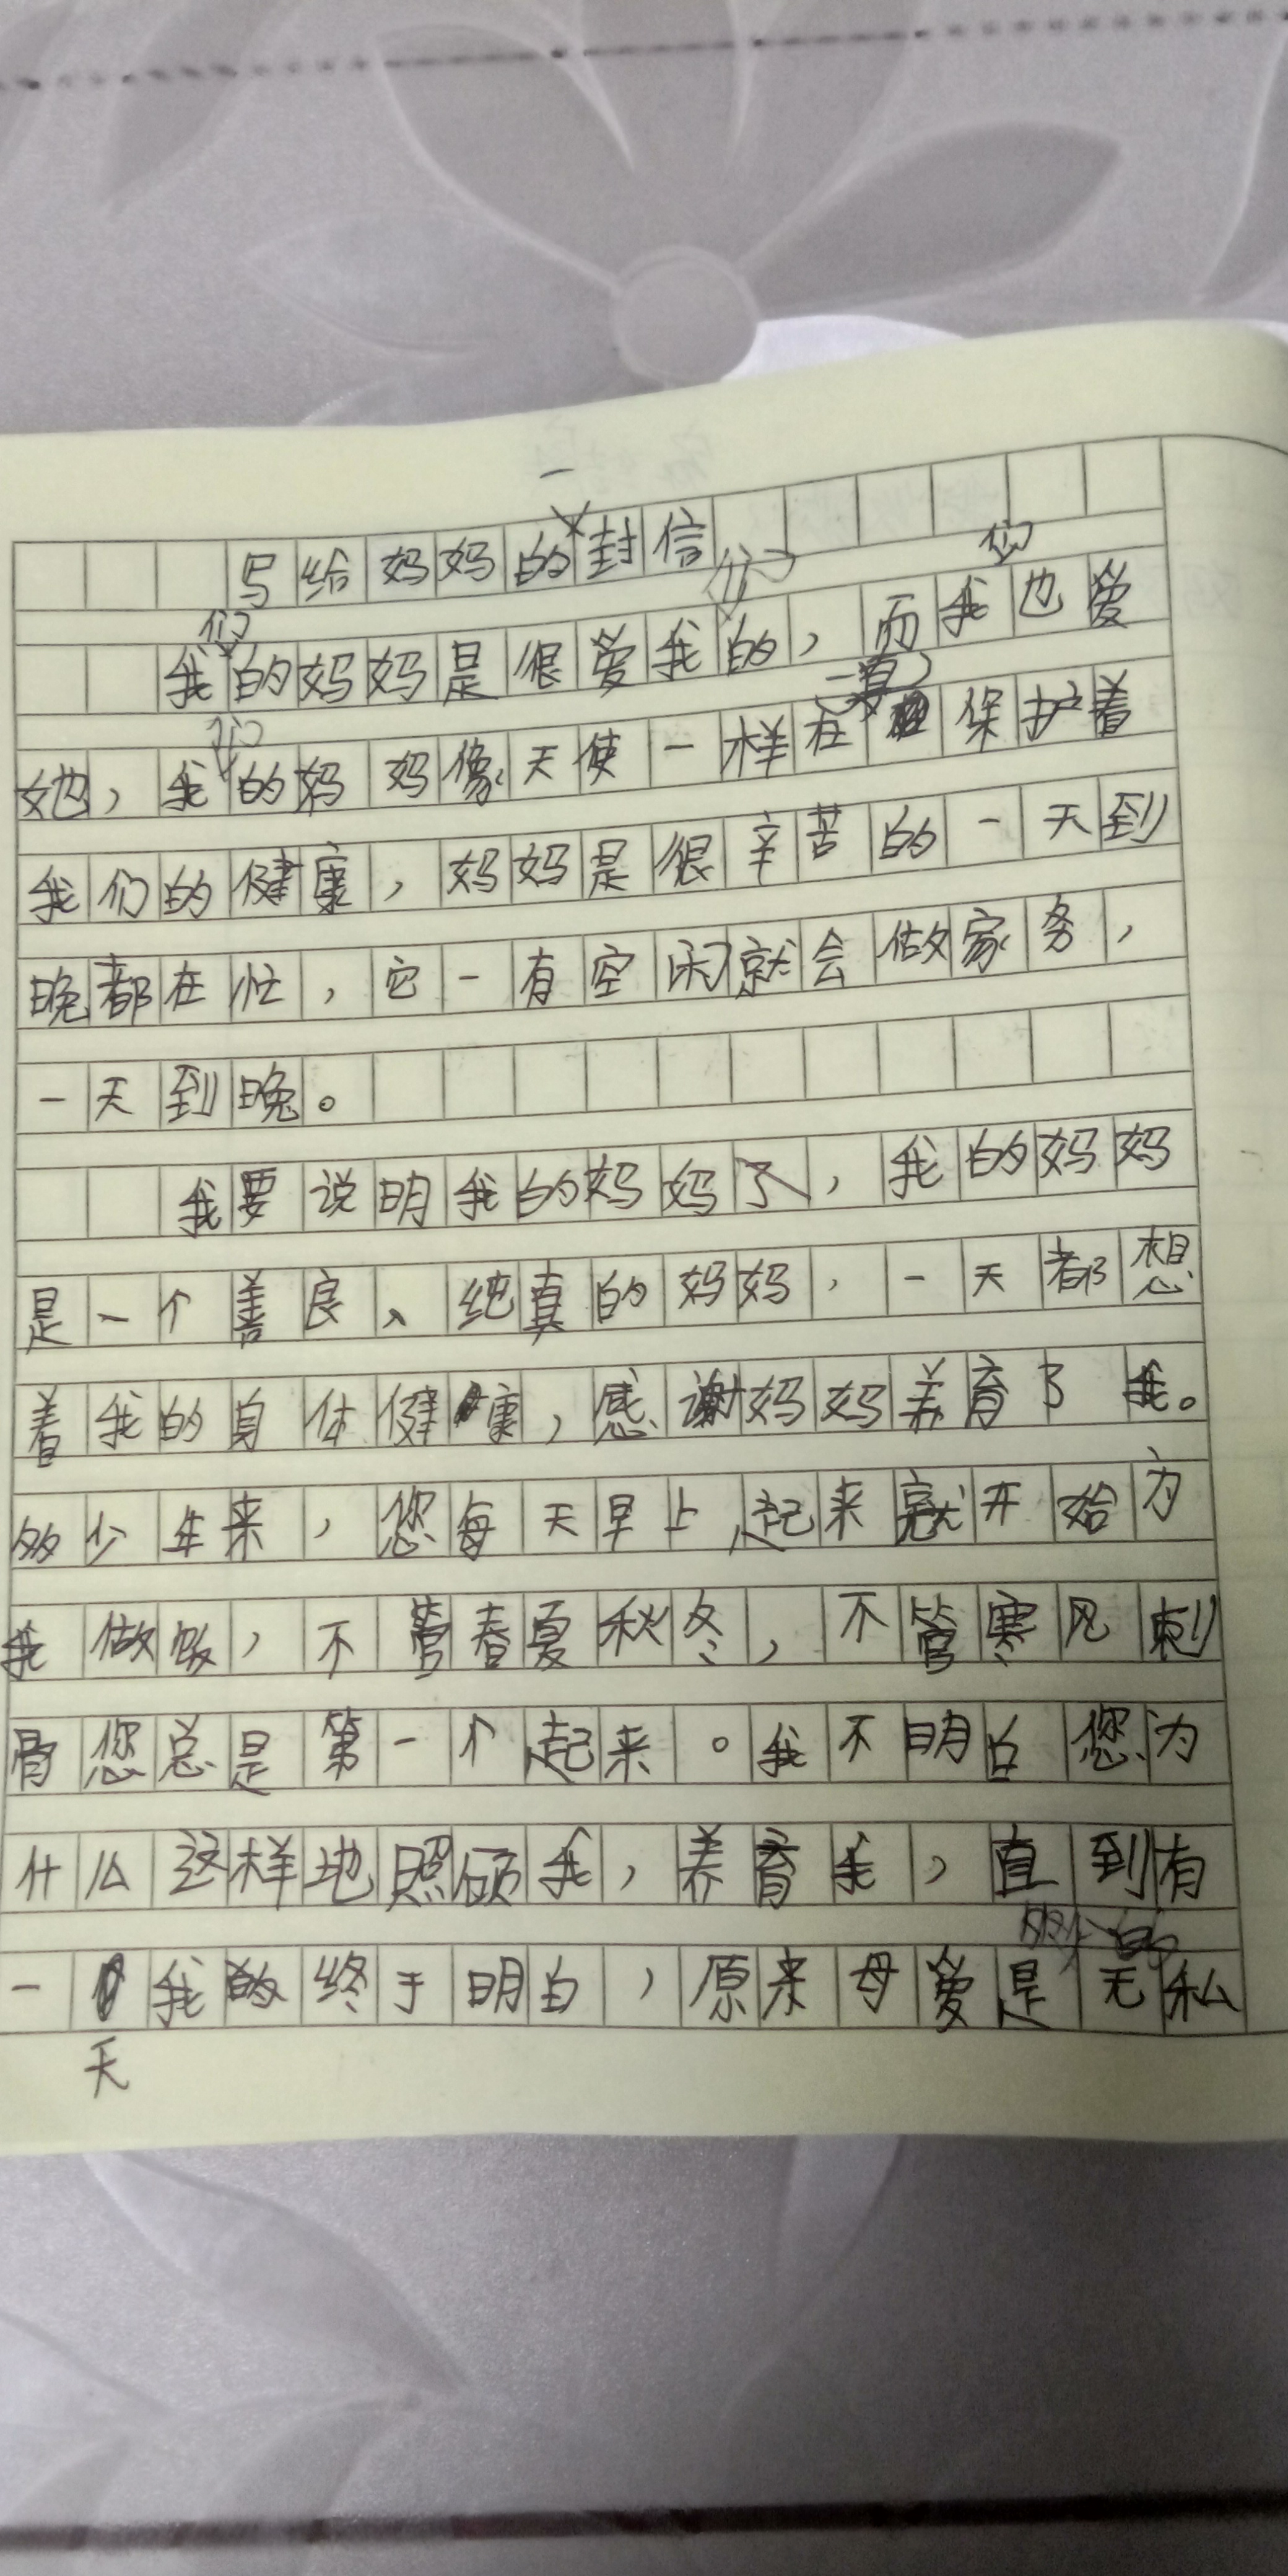 写给妈妈的一封信
我们的妈妈是很爱我们的，而我们也爱
她，我们的妈妈像天使一样在一直保护着
我们的健康，妈妈是很辛苦的一天到
晚都在忙，它一有空闲就会做家务，
一天到晚。
我要说明我的妈妈了，我的妈妈
是一个善良、纯真的妈妈，一天都想
着我的身体健康，感谢妈妈养育了我。
多少年来，您每天早上起来就开始为
我做饭，不管春夏秋冬，不管寒风刺
骨您总是第一个起来。我不明白您为
什么这样地照顾我，养育我，直到有
一天我终于明白，原来母爱是多么的无私